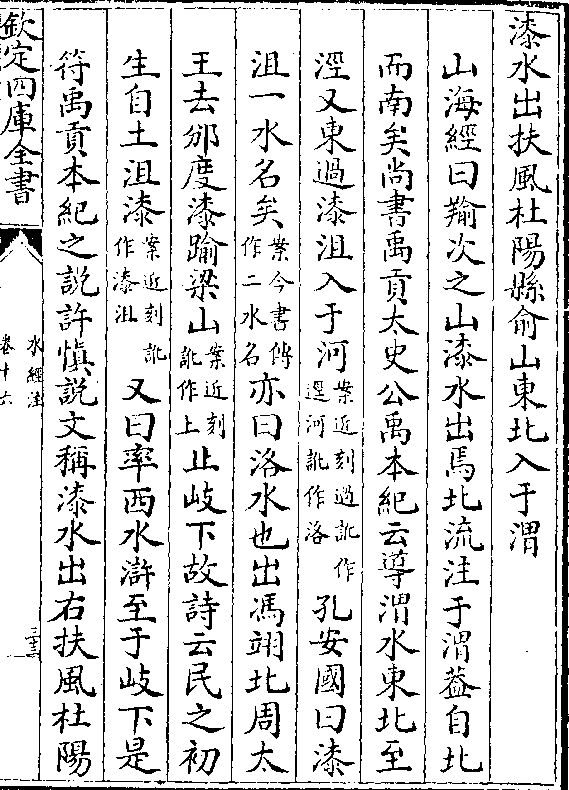 漆水出扶風杜陽縣俞山東北入于渭
山海經曰羭次之山漆水出焉北流注于渭蓋自北
而南矣尚書禹貢太史公禹本紀云導渭水東北至
涇又東過漆沮入于河案近刻過訛作遝河訛作洛孔安國曰漆
沮一水名矣案今書傳作二水名亦曰洛水也出馮翊北周太
王去邠度漆踰梁山案近刻訛作上止岐下故詩云民之初
生自土沮漆案近刻訛作漆沮又曰率西水滸至于岐下是
符禹貢本紀之說許慎說文稱漆水出右扶風杜陽
欽定四庫全書
水經注
卷十六